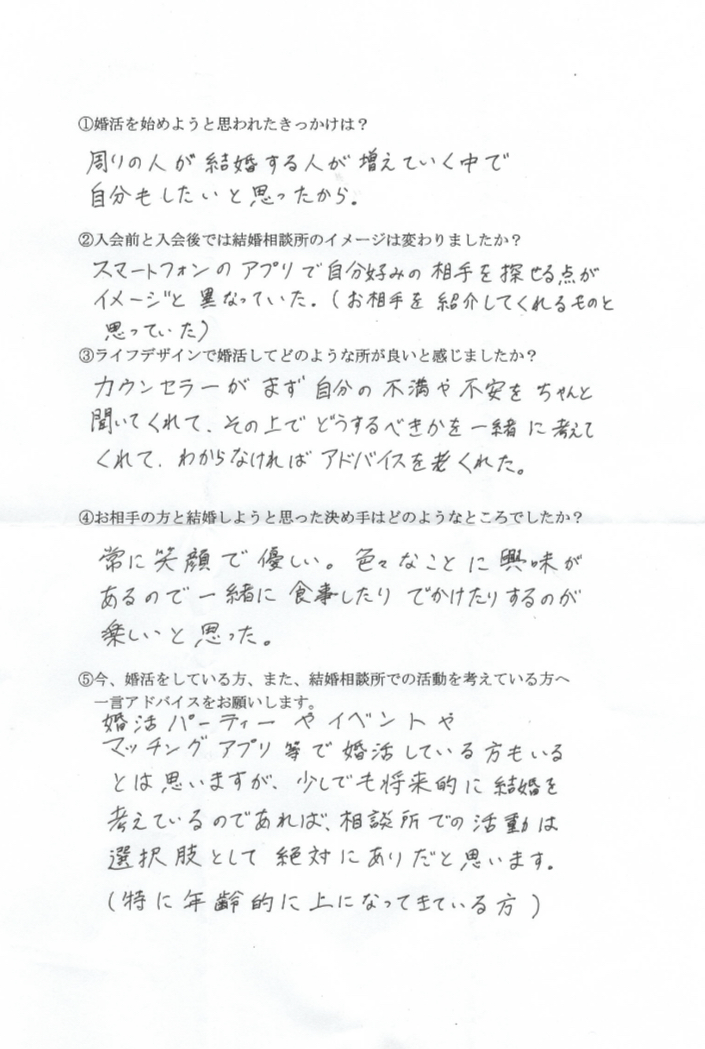 ①婚活を始めようと思われたきっかけは？
周りの人が結婚する人が増えていく中で
自分もしたいと思ったから。
②入会前と入会後では結婚相談所のイメージは変わりましたか？
スマートフォンのアプリで自分好みの相手を探せる点が
イメージと異なっていた。(お相手を紹介してくれるものと
思っていた)
③ライフデザインで婚活してどのような所が良いと感じましたか？
カウンセラーがまず自分の不満や不安をちゃんと
聞いてくれて、その上でどうするべきかを一緒に考えて
くれて、わからなければアドバイスを くれた。
④お相手の方と結婚しようと思った決め手はどのようなところでしたか？
常に笑顔で優しい。色々なことに興味が
あるので一緒に食事したりでかけたりするのが
楽しいと思った。
⑤今、婚活をしている方、また、結婚相談所での活動を考えている方へ
一言アドバイスをお願いします。
婚活パーティーやイベントや
マッチングアプリ等で婚活している方もいる
とは思いますが、少しでも将来的に結婚を
考えているのであれば、相談所での活動は
選択肢として絶対にありだと思います。
(特に年齢的に上になってきている方)